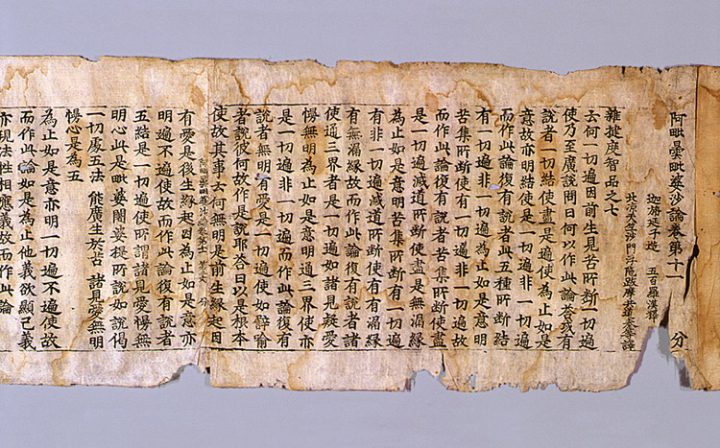 阿毗曇毗婆沙論卷第十一 分
迦旃延子造 五百羅漢釋
北涼天竺沙門浮陀跋摩共道泰等譯
雜揵度智品之七
云何一切遍因前生見苦所斷一切遍
使乃至廣說問曰何以作此論答或有
說者一切結使盡是遍使為止如是
意故亦明結使是一切遍非一切遍故
而作此論復有說者此五種所斷結
有一切遍非一切遍為止如是意明
苦集所斷使有一切遍非一切遍故
而作此論復有說者苦集所斷使盡
是一切遍滅道所斷使盡是無漏緣
為止如是意明苦集所斷有一切遍
有非一切遍滅道所斷使有有漏緣
有無漏緣故而作此論復有說者諸
使通三界者是一切遍如諸見疑愛
慢無明為止如是意明通三界使亦
是一切遍非一切遍而作此論復有
說者無明有愛是一切遍使如辟喻
者說彼何故作是說耶荅曰以是根本
使故其事云何無明是前生緣起因
阿毗曇毗婆沙論 分
有愛是後生緣起因為止如是意亦
明遍不遍使故而作此論復有說者
五結是一切遍使所謂諸見愛慢無
明心此是毗婆闍婆提所說如說偈
一切處五法 能廣生於苦 諸見愛無明
慢心是為五
為止如是意亦明一切遍不遍使故
而作此論如是為止他義欲顯己義
亦現法性相應義故而作此論